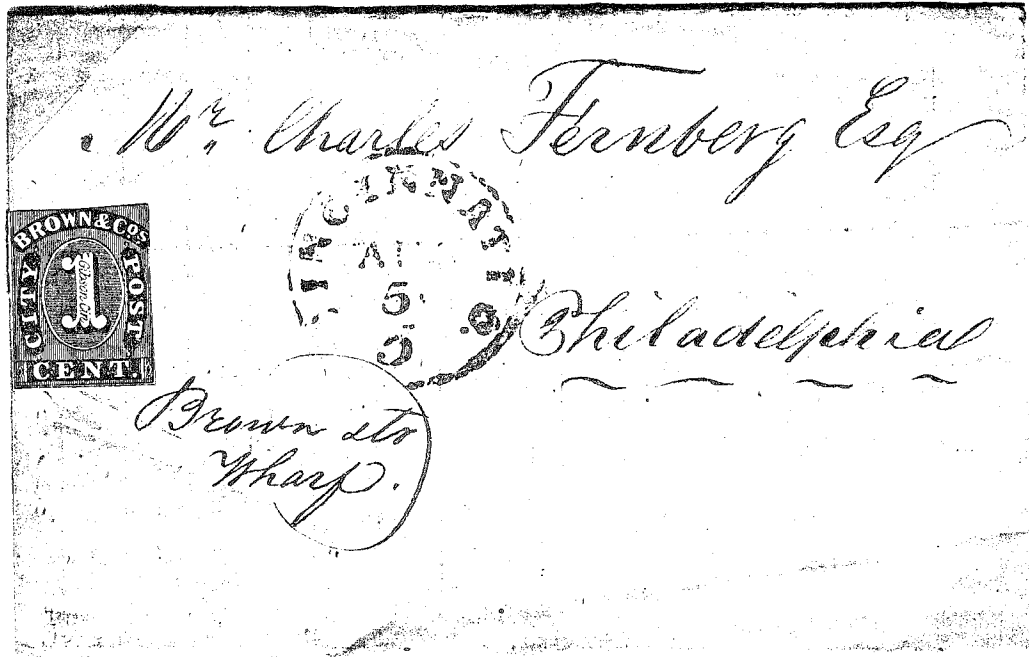 Mr. Charles Fernberg Esq
BROWN & COS
CITY POST.
1
CENT.
CINCINNATI O.
5
5
Philadelphia
Brown sts
Wharf.